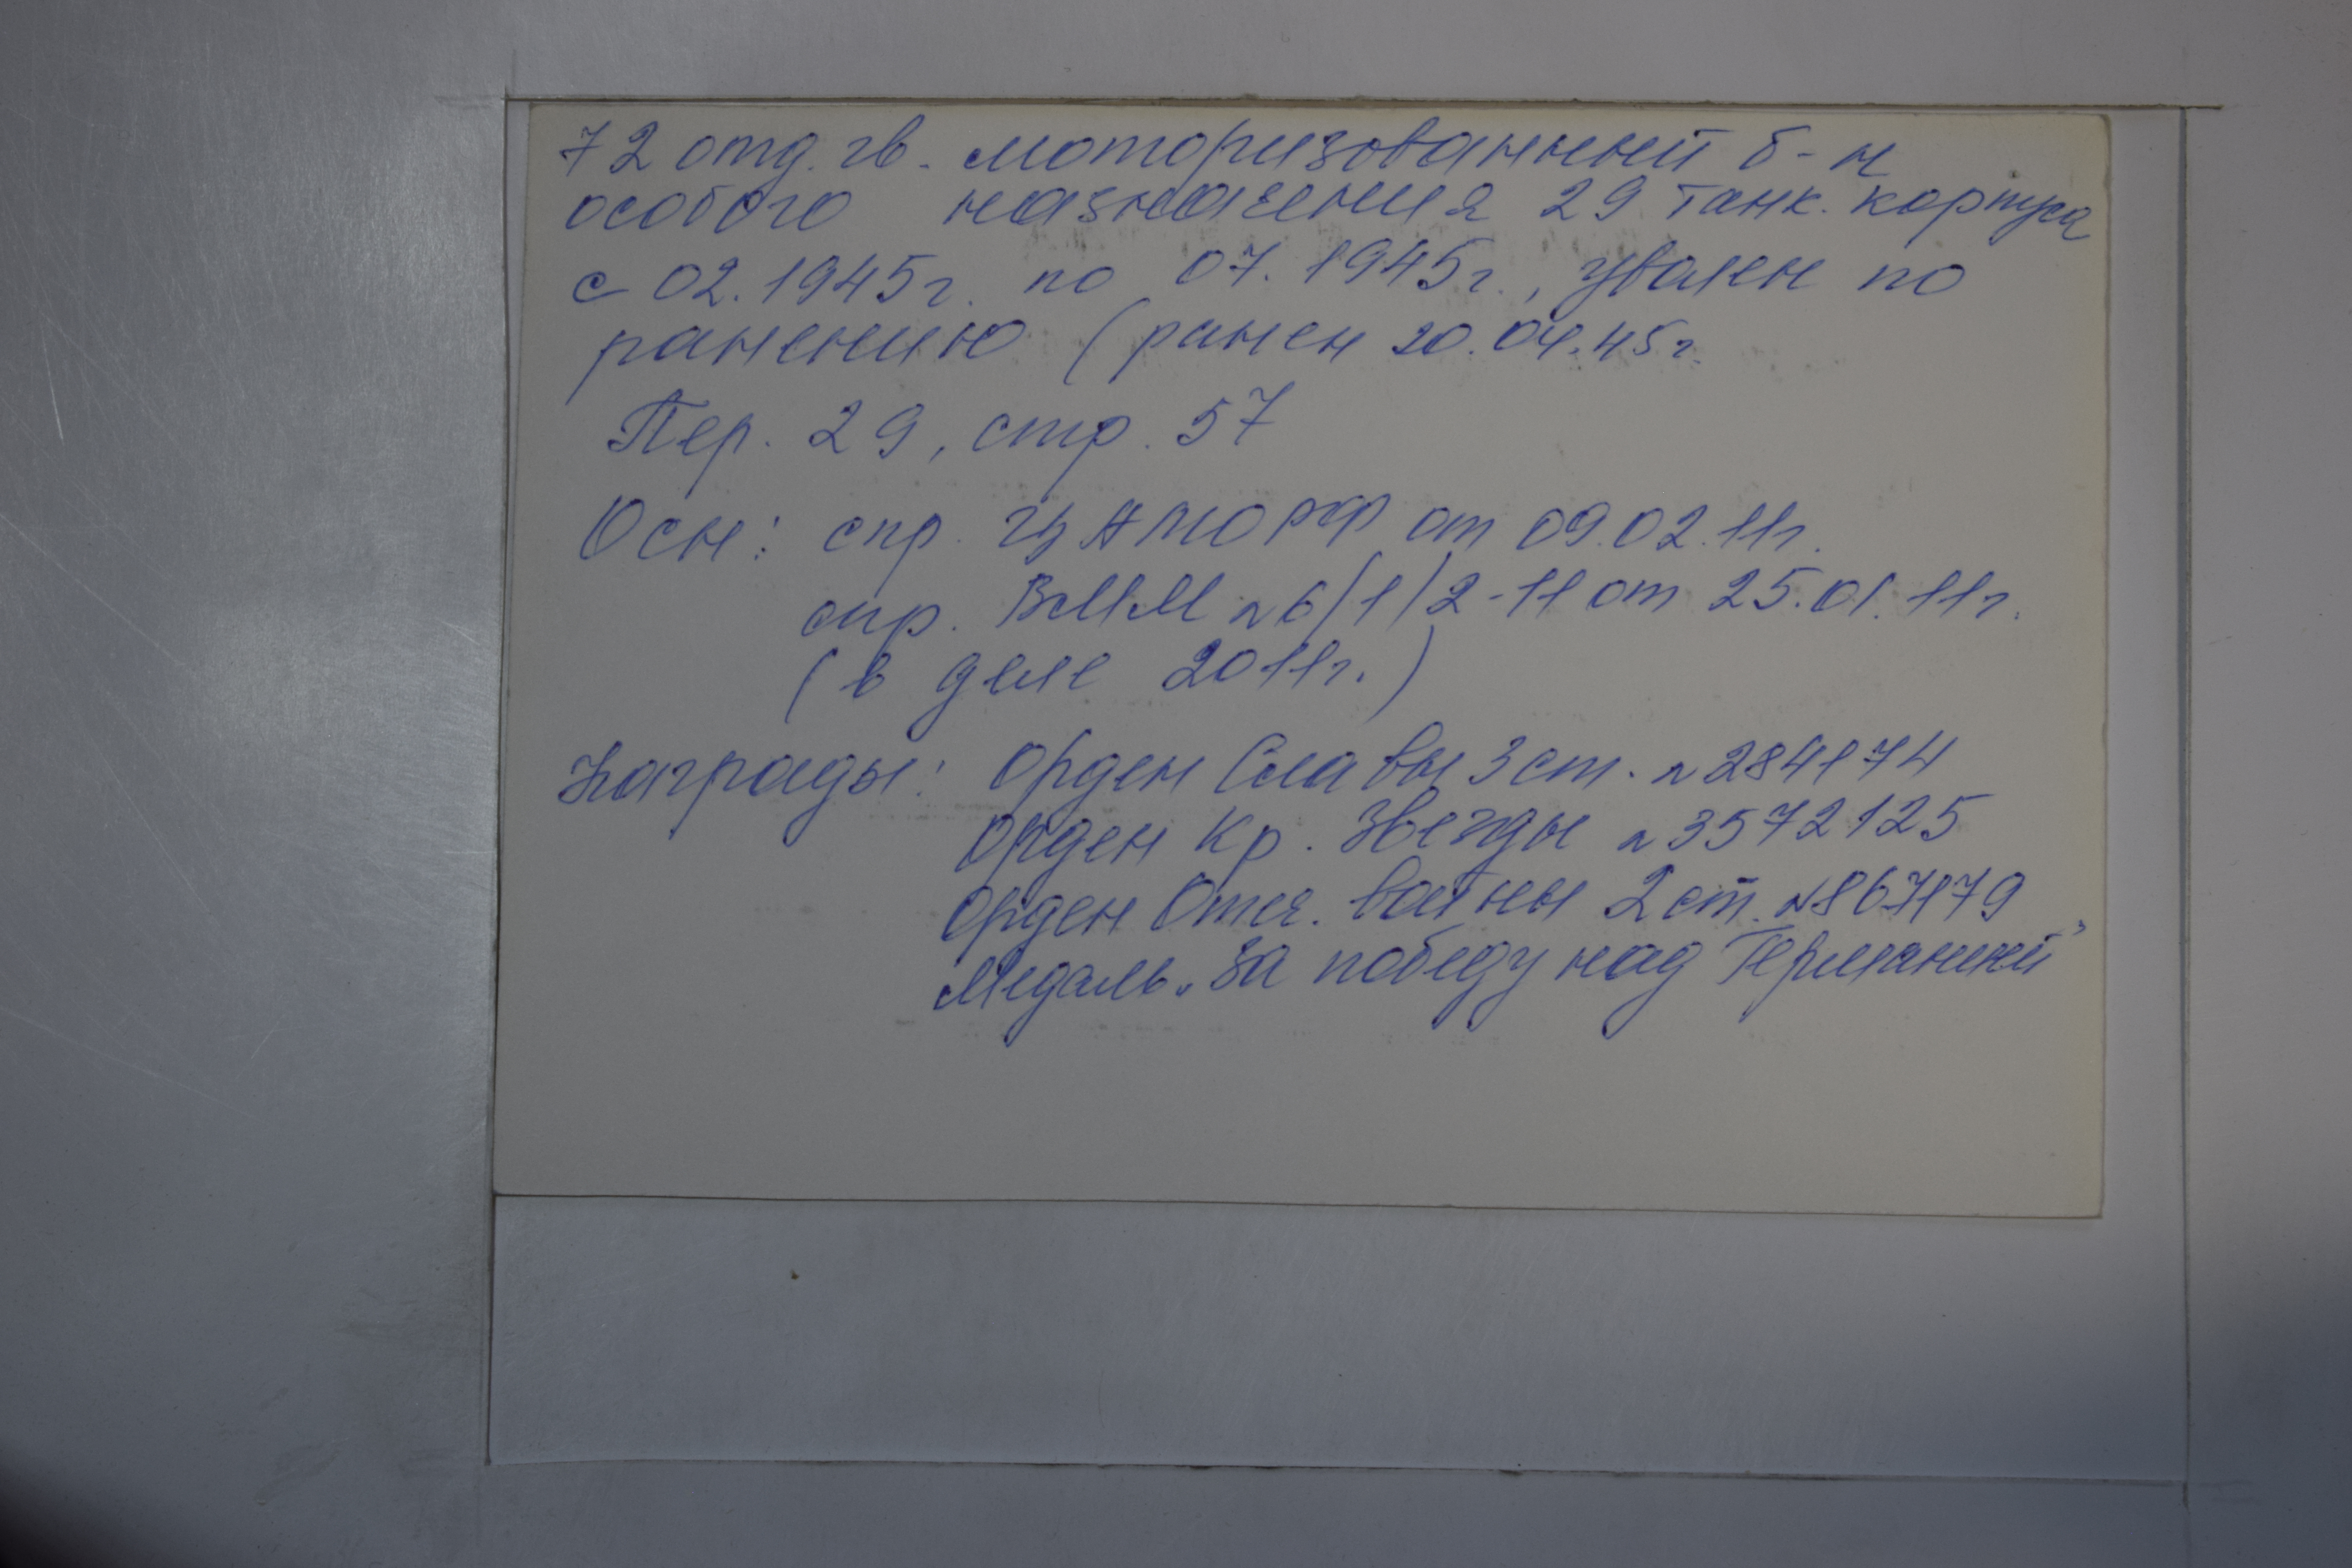 72 отд. гв. моторизованный б-н
особого назначения 29 танк. корпуса
с 02.1945г. по 07.1945г., уволен по
ранению (ранен 20.04.45г.
Пер. 29, стр. 57
Осн: спр. ЦАМО РФ от 09.02.11г.
спр. ВММ №6/1/2-11 от 25.01.11г.
(в деле 2011г.)
Награды: Орден Славы 3 ст. №284174
Орден Кр. Звезды №3572125
Орден Отеч. войны 2 ст.
Медаль „За победу над Германией"